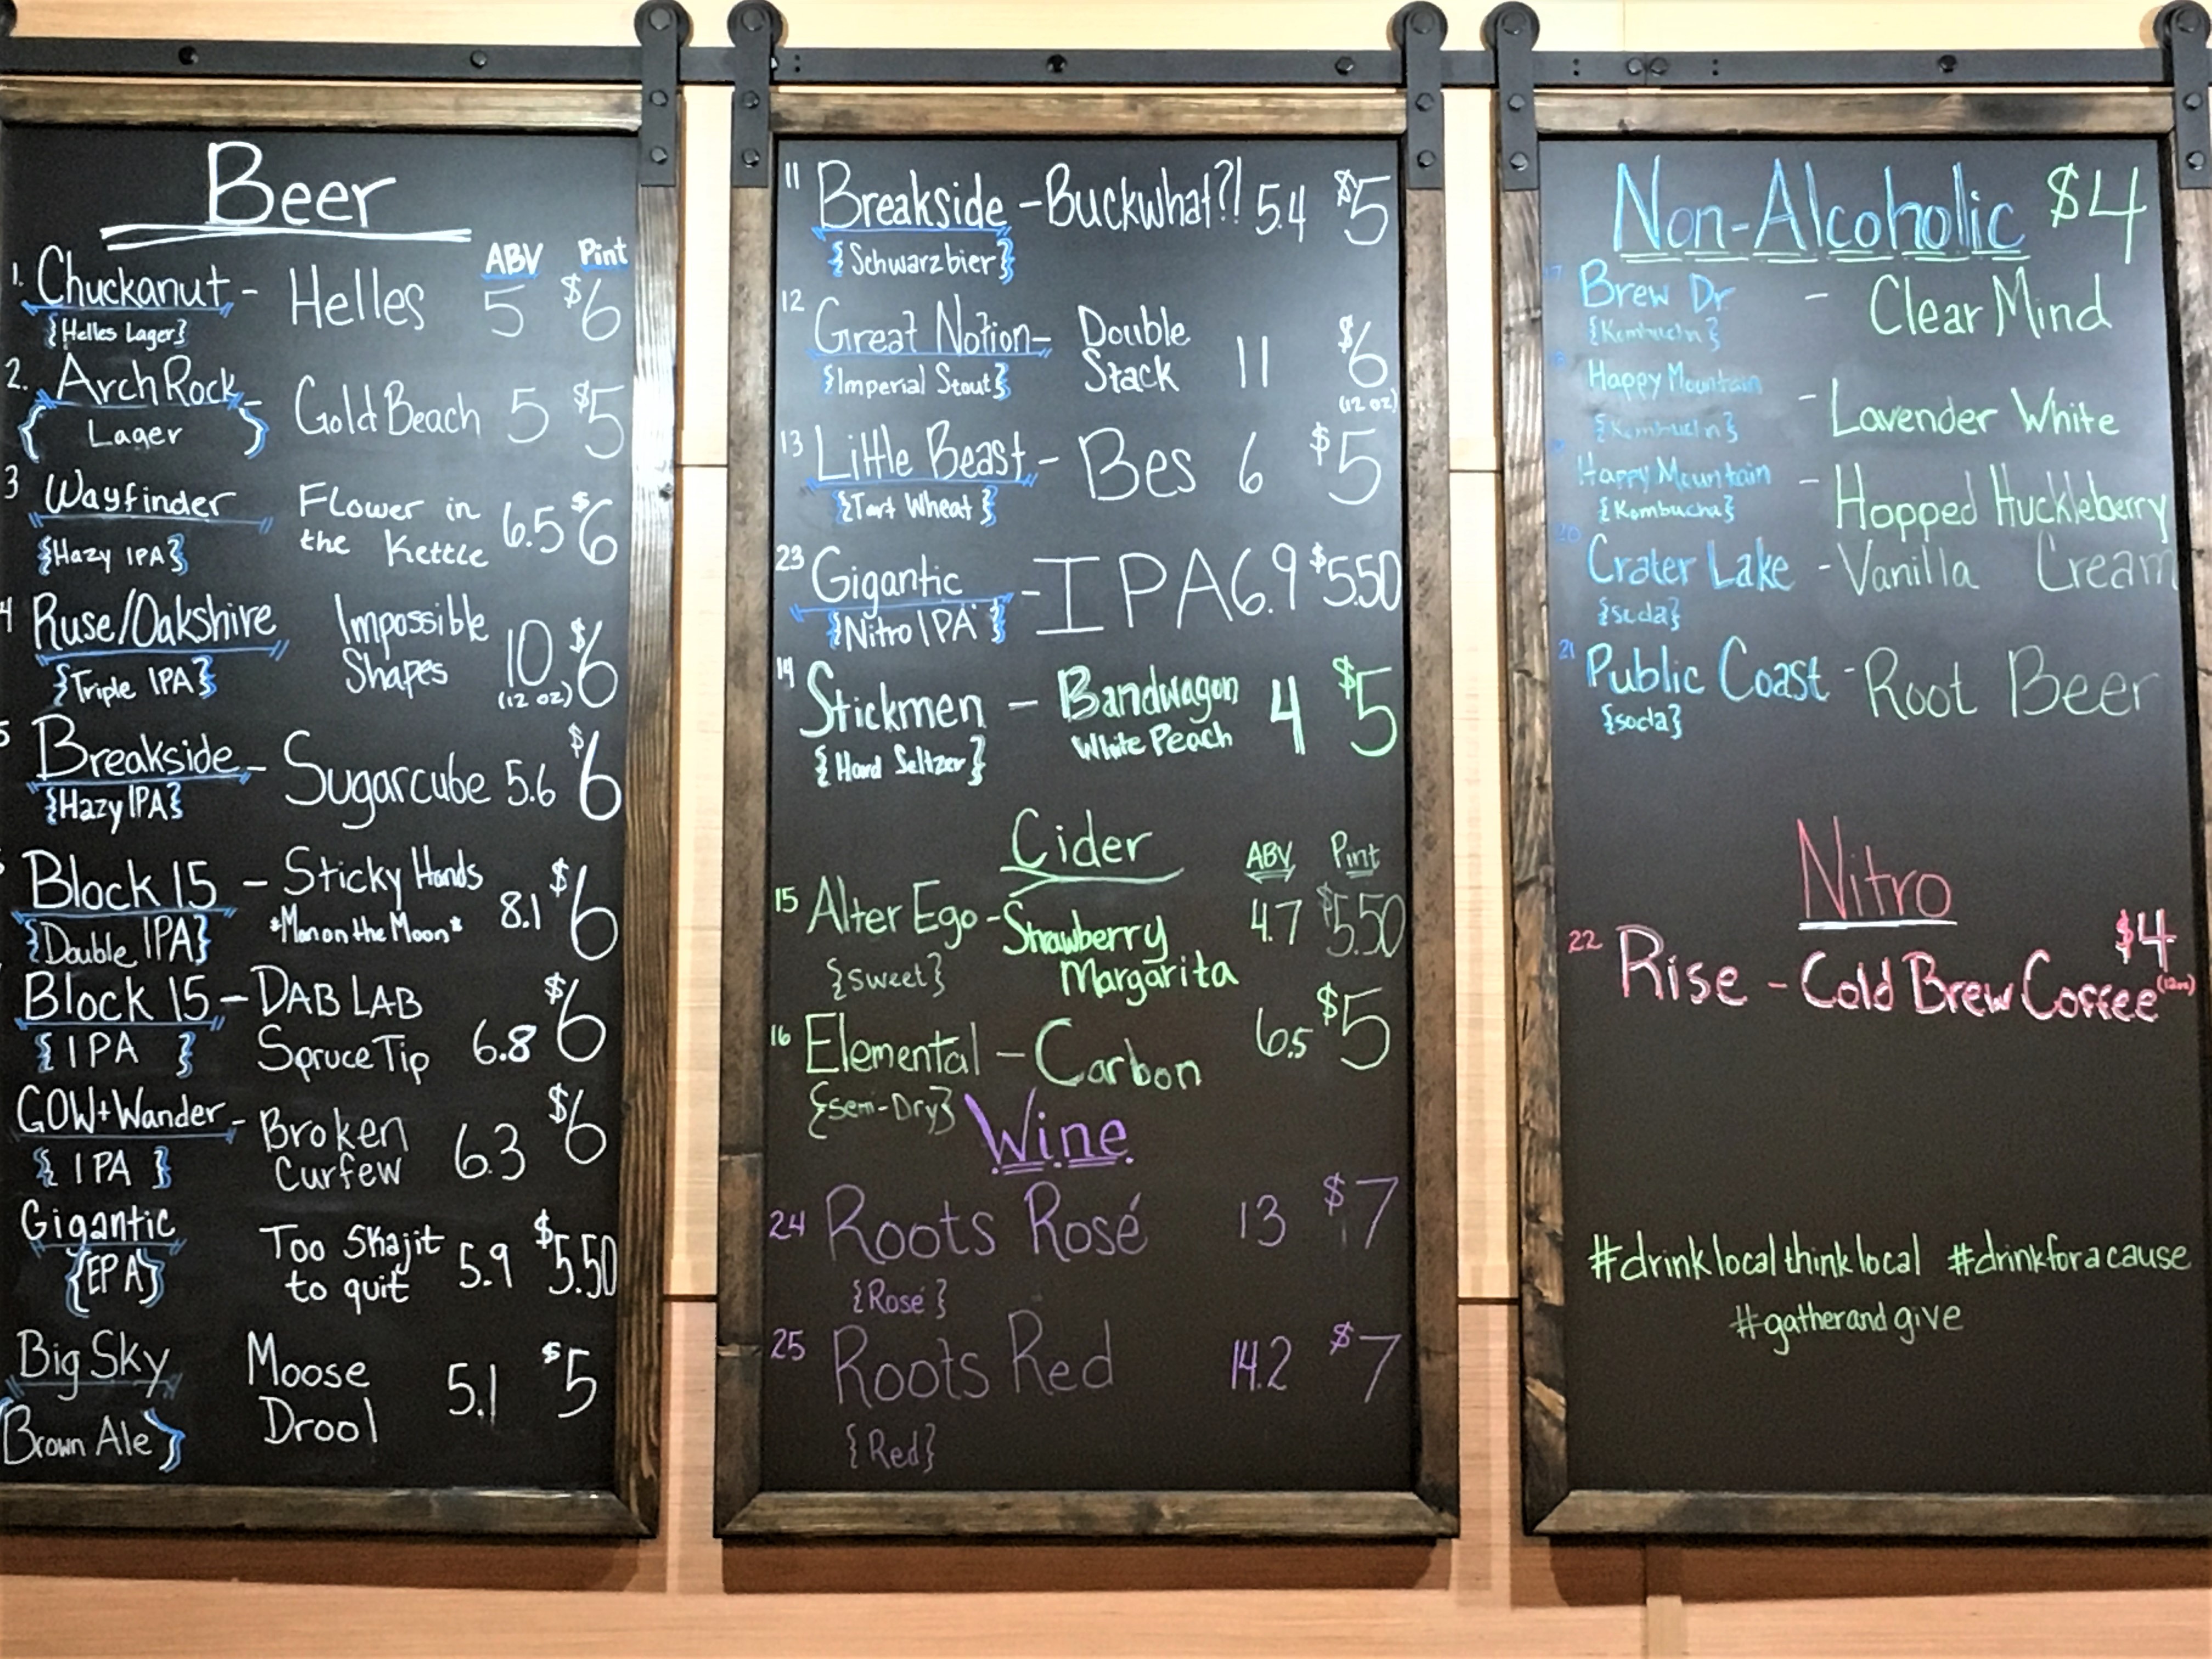 Beer
ABV Pint
1. Chuckanut - Helles 5 $6
{Helles Lager}
2. Arch Rock - Gold Beach 5 $5
{Lager}
3 Wayfinder Flower in the Kettle 6.5 $6
{Hazy IPA}
4 Ruse/Oakshire Impossible Shapes 10 $6
{Triple IPA} (12 oz)
5 Breakside - Sugarcube 5.6 $6
{Hazy IPA}
Block 15 - Sticky Hands 8.1 $6
{Double IPA} *Man on the Moon*
Block 15 - DAB LAB $6
{IPA} Spruce Tip 6.8
GOW+Wander - Broken Curfew 6.3 $6
{IPA}
Gigantic Too Skajit to quit 5.9 $5.50
{EPA}
Big Sky Moose Drool 5.1 $5
{Brown Ale}
11 Breakside - Buckwhat?! 5.4 $5
{Schwarzbier}
12 Great Notion - Double Stack 11 $6
{Imperial Stout} (12 oz)
13 Little Beast - Bes 6 $5
{Tart Wheat}
23 Gigantic - IPA 6.9 $5.50
{Nitro IPA}
14 Stickmen - Bandwagon 4 $5
{Hard Seltzer} White Peach
Cider
ABV Pint
15 Alter Ego - Strawberry Margarita 4.7 $5.50
{Sweet}
16 Elemental - Carbon 6.5 $5
{Semi-Dry}
Wine
24 Roots Rosé 13 $7
{Rosé}
25 Roots Red 14.2 $7
{Red}
Non-Alcoholic $4
Brew Dr - Clear Mind
{Kombucha}
Happy Mountain - Lavender White
{Kombucha}
Happy Mountain - Hopped Huckleberry
{Kombucha}
20 Crater Lake - Vanilla Cream
{soda}
21 Public Coast - Root Beer
{soda}
Nitro
22 Rise - Cold Brew Coffee $4
(12oz)
#drinklocalthinklocal #drinkforacause
#gatherandgive